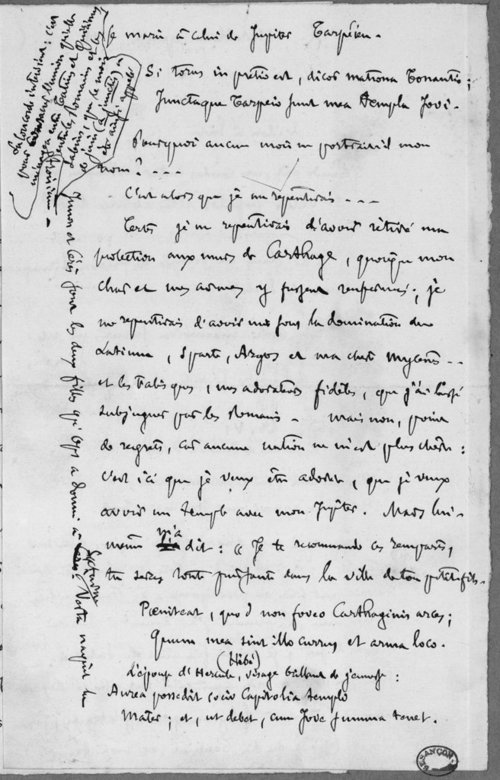 se marie à celui de Jupiter Tarpéien.
Si torus in pretio est, dicor matrona Tonantis;
Junctaque Tarpeio sunt mea templa Jovi.
Pourquoi aucun mois ne porterait-il mon
nom? - - - -
C'est alors que je me repentirais - - -
Certes je me repentirais d'avoir retiré ma
protection aux murs de Carthage, quoique mon
char et mes armes y fussent renfermés; je
me repentirais d'avoir mis sous la domination du
Latium, Sparte, Argos et ma chère Mycènes - -
et les Falisques, mes adorateurs fidèles, que j'ai laissé
subjuguer par les Romains - mais non, point
de regrets, car aucune nation ne m'est plus chère:
c'est ici que je veux être adorée, que je veux
avoir un temple avec mon Jupiter. Mars lui-
même m'a dit: « Je te recommande ces remparts,
tu seras toute puissante dans la ville de ton petit-fils.
Pœniteat, quod non foveo Carthaginis arces;
Quum mea sint illo currus et arma loco.
(Hébé)
l'épouse d'Hercule, visage brillant de jeunesse:
Aurea possedit socio Capitolia templo
Mater; et, ut debet, cum Jove summa tenet.
Junon et Cérès sont les deux filles qu'Ops a donné à Saturne
Vesta naquit la
BESANÇON